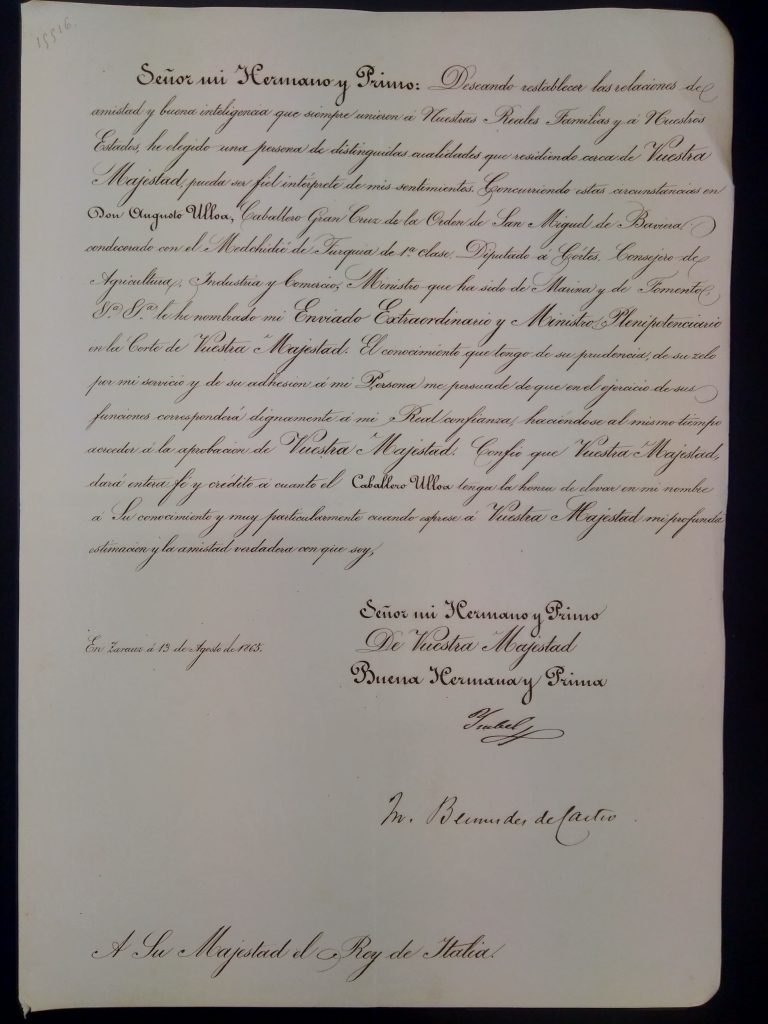 15516.
Señor mi Hermano y Primo: Deseando restablecer las relaciones de
amistad y buena inteligencia que siempre unieron á Nuestras Reales Familias y á Nuestros
Estados, he elegido una persona de distinguidas cualidades que residiendo cerca de Vuestra
Majestad, pueda ser fiel intérprete de mis sentimientos. Concurriendo estas circunstancias en
Don Augusto Ulloa, Caballero Gran Cruz de la Orden de San Miguel de Baviera,
condecorado con el Medchidié de Turquia de 1ª clase. Diputado á Córtes. Consejero de
Agricultura, Industria y Comercio, Ministro que ha sido de Marina y de Fomento
&ª &ª le he nombrado mi Enviado Extraordinario y Ministro Plenipotenciario
en la Corte de Vuestra Majestad. El conocimiento que tengo de su prudencia, de su zelo
por mi servicio y de su adhesion á mi Persona me persuade de que en el ejercicio de sus
funciones corresponderá dignamente á mi Real confianza, haciéndose al mismo tiempo
acreedor á la aprobacion de Vuestra Majestad. Confio que Vuestra Majestad,
dará entera fé y crédito á cuanto el Caballero Ulloa tenga la honra de elevar en mi nombre
á Su conocimiento y muy particularmente cuando esprese á Vuestra Majestad mi profunda
estimacion y la amistad verdadera con que soy,
Señor mi Hermano y Primo
En Zarauz á 13 de Agosto de 1865.
De Vuestra Majestad
Buena Hermana y Prima
Ysabel
M. Bermudez de Castro
A Su Majestad el Rey de Italia.